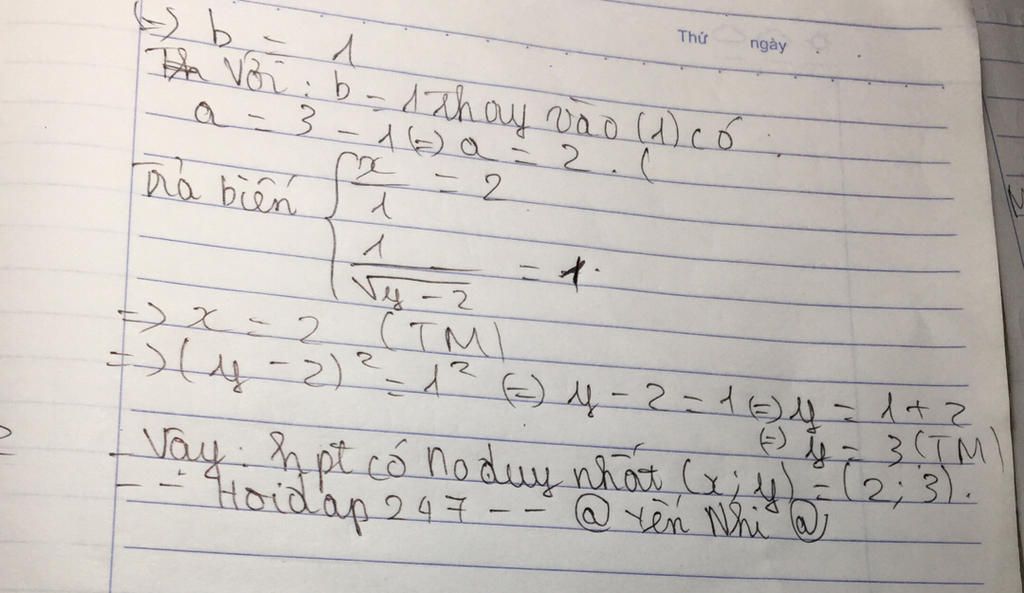 (=) b = 1
Thứ ngày
Với: b = 1 thay vào (1) có
a = 3 - 1 (=) a = 2. (
Trả biến { x/1 = 2
1/√y-2 = 1.
=> x = 2 (TM)
=> (y - 2)² = 1² (=) y - 2 = 1 (=) y = 1 + 2
(=) y = 3 (TM)
- Vậy: hpt có no duy nhất (x; y) = (2; 3).
- - Hoidap 247 - - @ Yến Nhi @